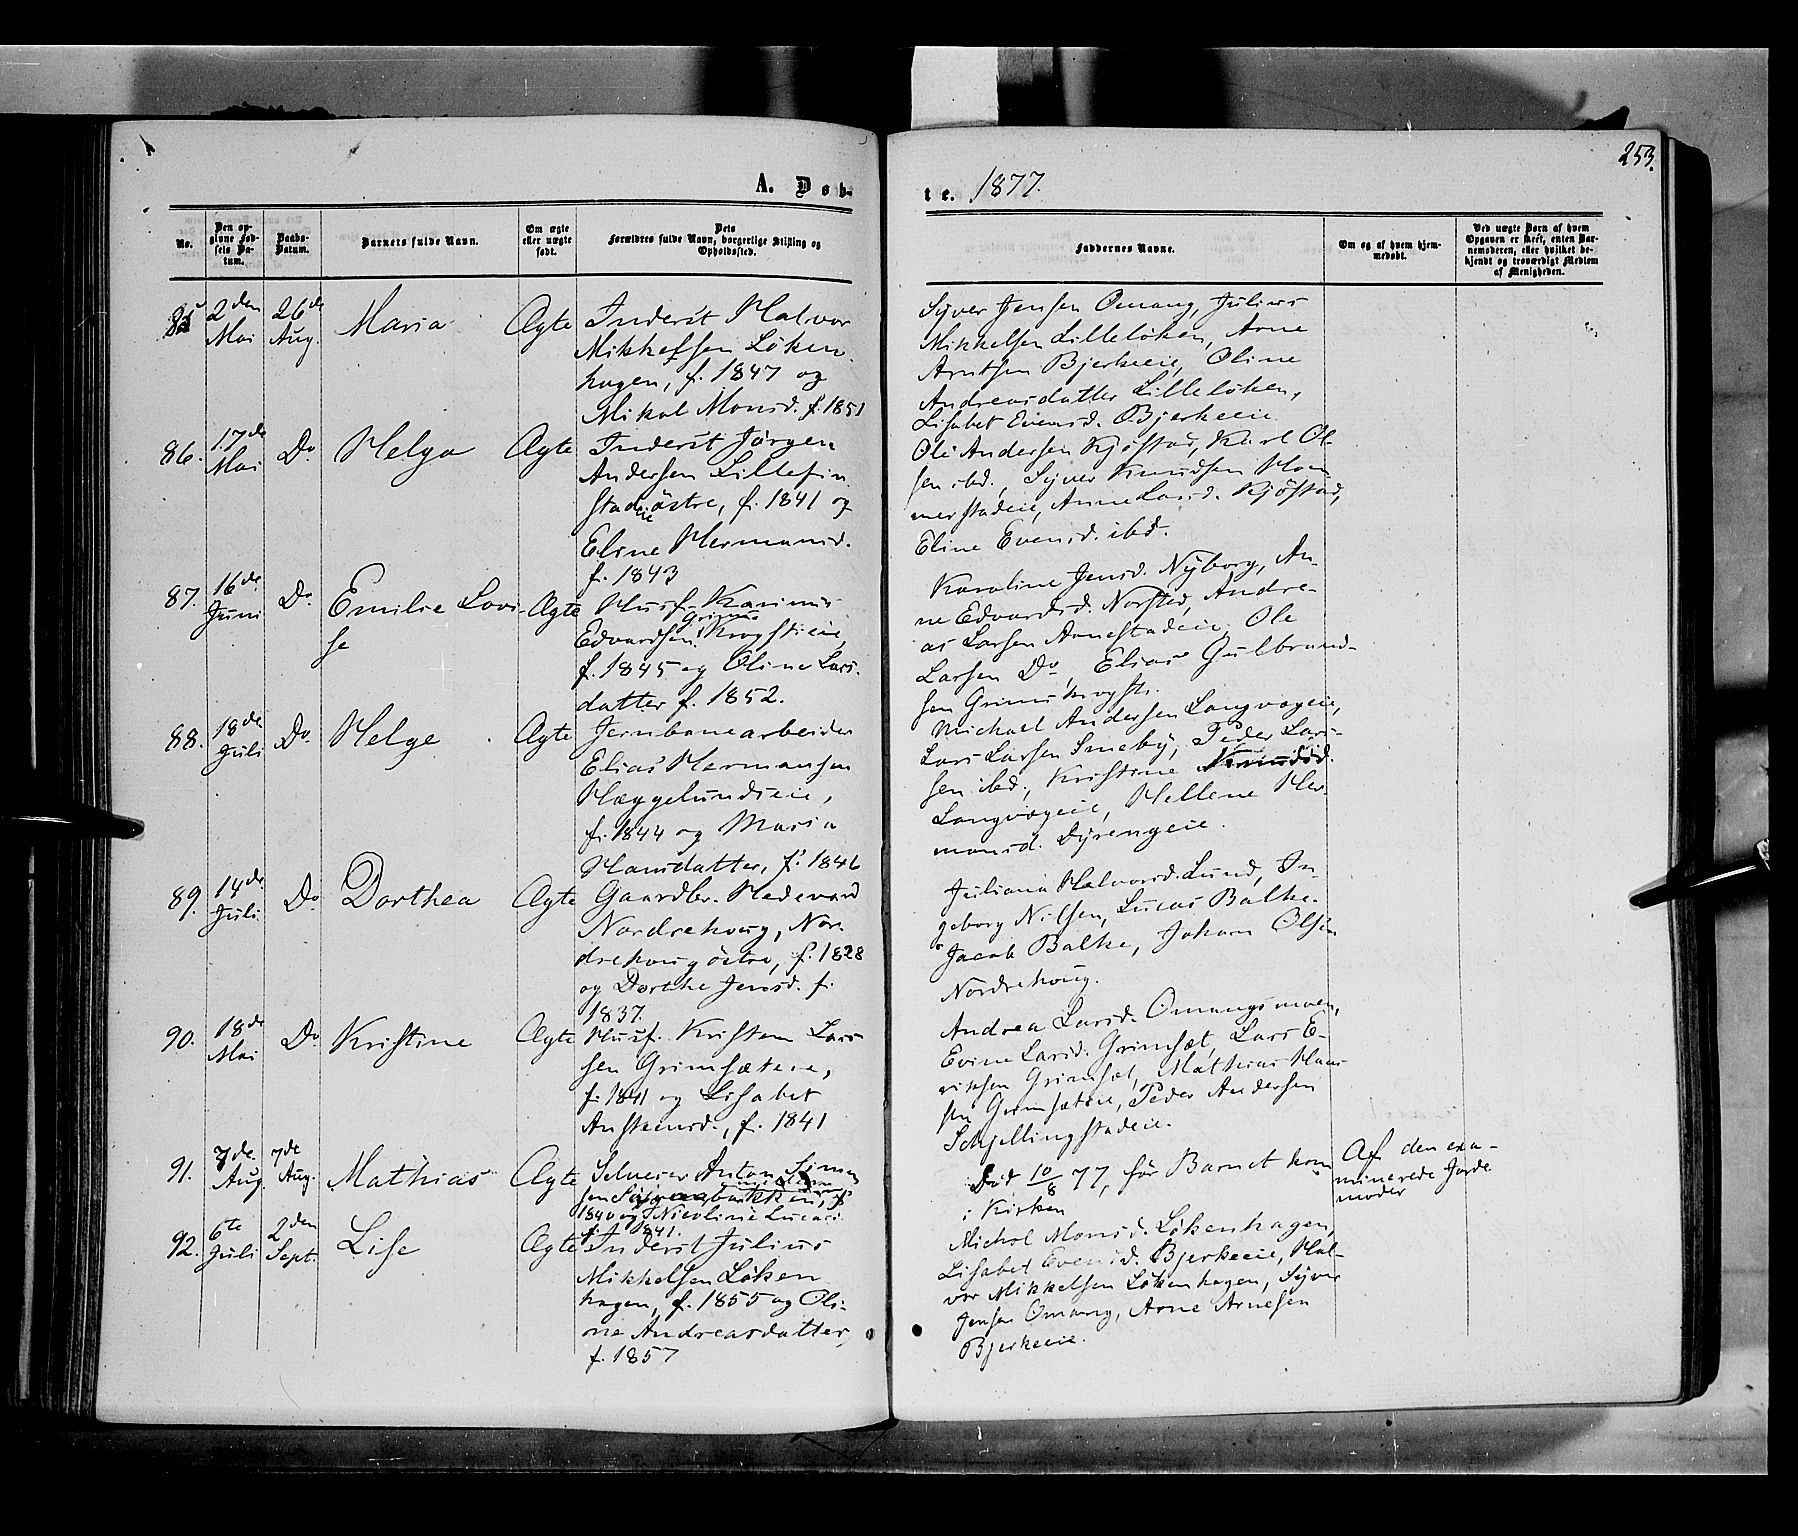 253.
A. Døb-
te. 1877.
No.
Den op-
givne Fød-
sels Da-
tum.
Daabs-
Datum.
Barnets fulde Navn.
Om ægte
eller uægte
født.
Dets
Forældres fulde Navn, borgerlige Stilling og
Opholdssted.
Faddernes Navne.
Om og af hvem hjem-
medøbt.
Ved uægte Børn af hvem
Opgaven er skeet, enten Bar-
nemoderen, eller hvilket be-
kjendt og troværdigt Medlem
af Menigheden.
85
2den
Mai
26de
Aug.
Maria
Ægte
Inderst Halvor
Mikkelsen Løken-
hagen, f. 1847 og
Mikal Monsd. f. 1851
Syver Jensen Omang, Julius
Mikkelsen Lilleløken, Arne
Arntsen Bjerkeeie, Oline
Andreasdatter Lilleløken,
Lisabet Evensd. Bjerkeeie
86.
17de
Mai
Do
Helga
Ægte
Inderst Jørgen
Andersen Lillefin
stadeie østre, f. 1841 og
Eline Hermansd.
f. 1843
Ole Andersen Kjøstad, Karl Ol-
sen ibd., Syver Knudsen Ham
merstadeie, Anne Larsd. Kjøstad,
Eline Evensd. ibd.
87.
16de
Juni
Do.
Emilie Lovi-
se
Ægte
Husf. Karinus
Edvardsen Grimskrogstieie,
f. 1845 og Oline Lars-
datter f. 1852.
Karoline Jensd. Nyborg, An-
ne Edvardsd. Norsted, Andre-
as Larsen Arnestadeie, Ole
Larsen Do, Elias Gulbrand-
sen Grimskrogst.
88.
18de
Juli
Do.
Helge
Ægte
Jernbanearbeider
Elias Hermansen
Hæggelundseie,
f. 1844 og Maria
Hansdatter, f. 1846
Michael Andersen Langvageie,
Lars Larsen Smeby, Peder Lar-
sen ibd., Kristine
Langvageie, Hellene Her-
mansd. Dyrengeie.
89.
14de
Juli
Do
Dorthea
Ægte
Gaardbr. Hedevard
Nordrehoug, Nor-
drehoug østre, f. 1828
og Dorthe Jensd. f.
1837.
Juliana Halvorsd. Lund, In-
geborg Nilsen, Lucas Balke.
Jacob Balke, Johan Olsen
Nordrehoug.
90.
18de
Mai
Do
Kristine
Ægte
Husf. Kristen Lar-
sen Grimsæteie,
f. 1841 og Lisabet
Anstensd., f. 1841
Andrea Larsd. Omangsmoen,
Evine Larsd. Grimsæt, Lars E-
riksen Grimsæt, Mathias Han
sen Grimsæteie, Peder Andersen
Schjellingstadeie.
91.
7de
Aug.
7de
Aug.
Mathias
Ægte
Selveier Anton Simen
sen
1840 og Nicoline Lucasd.
f. 1841.
Død 10/8 77, før Barnet kom
i Kirken
Af den exa-
minerede Jorde
moder
92.
6te
Juli
2den
Sept.
Lise
Ægte
Inderst Julius
Mikkelsen Løken
hagen, f. 1855 og Oli-
ne Andreasdatter,
f. 1857
Michol Monsd. Løkenhagen,
Lisabet Evensd. Bjerkeeie, Hal-
vor Mikkelsen Løkenhagen, Syver
Jensen Omang, Arne Arnesen
Bjerkeeie.